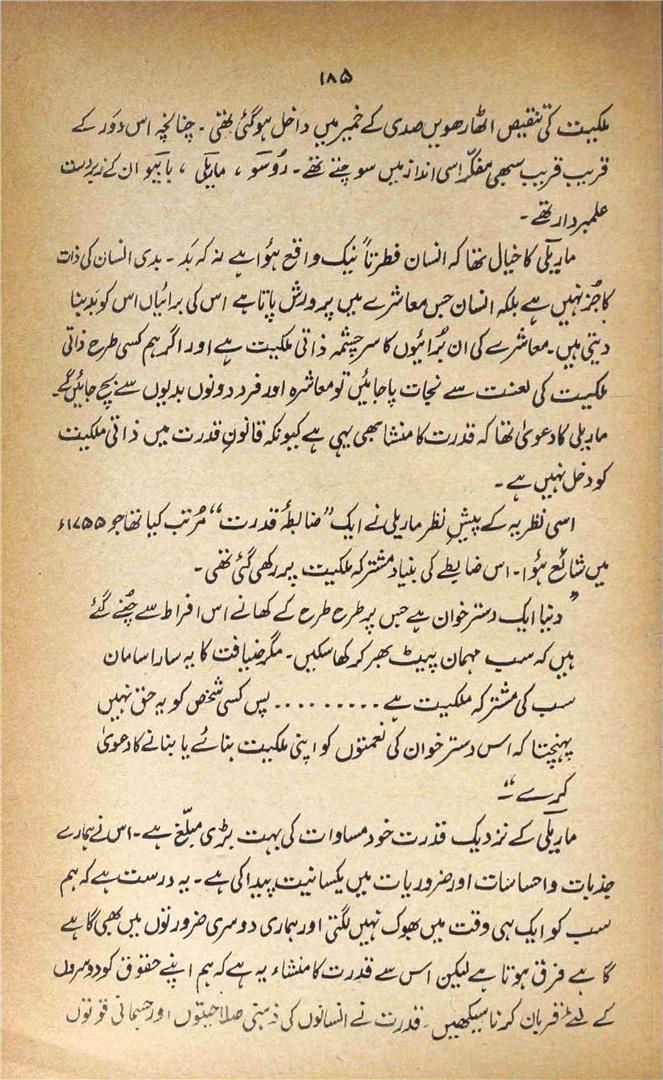 ۱۸۵
ملکیت کی تنقیص اٹھارھویں صدی کے خمیر میں داخل ہوگئی تھی۔ چنانچہ اس دَور کے
قریب قریب سبھی مفکّر اسی انداز میں سوچتے تھے۔ رُوسَو ، ماریلی ، بابیو ان کے زبردست
علمبردار تھے۔
ماریلی کا خیال تھا کہ انسان فطرتاً نیک واقع ہُوا ہے نہ کہ بَد۔ بدی انسان کی ذات
کا جُز نہیں ہے بلکہ انسان جس معاشرے میں پرورش پاتا ہے اس کی برائیاں اس کو بَد بنا
دیتی ہیں۔ معاشرے کی ان بُرائیوں کا سرچشمہ ذاتی ملکیت ہے اور اگر ہم کسی طرح ذاتی
ملکیت کی لعنت سے نجات پا جائیں تو معاشرہ اور فرد دونوں بدیوں سے بچ جائیں گے۔
ماریلی کا دعویٰ تھا کہ قدرت کا منشا بھی یہی ہے کیونکہ قانونِ قدرت میں ذاتی ملکیت
کو دخل نہیں ہے۔
اسی نظریہ کے پیشِ نظر ماریلی نے ایک ”ضابطۂ قدرت“ مُرتب کیا تھا جو ۱۷۵۵ء
میں شائع ہُوا۔ اس ضابطے کی بنیاد مشترکہ ملکیت پر رکھی گئی تھی۔
”دنیا ایک دسترخوان ہے جس پر طرح طرح کے کھانے اس افراط سے چُنے گئے
ہیں کہ سب مہمان پیٹ بھر کر کھا سکیں۔ مگر ضیافت کا یہ سارا سامان
سب کی مشترکہ ملکیت ہے ......... پس کسی شخص کو یہ حق نہیں
پہنچتا کہ اس دسترخوان کی نعمتوں کو اپنی ملکیت بنائے یا بنانے کا دعویٰ
کرے۔“
ماریلی کے نزدیک قدرت خود مساوات کی بہت بڑی مبلّغ ہے۔ اس نے ہمارے
جذبات و احساسات اور ضروریات میں یکسانیت پیدا کی ہے۔ یہ درست ہے کہ ہم
سب کو ایک ہی وقت میں بھوک نہیں لگتی اور ہماری دوسری ضرورتوں میں بھی گاہے
گاہے فرق ہوتا ہے لیکن اس سے قدرت کا منشاء یہ ہے کہ ہم اپنے حقوق کو دوسروں
کے لئے قربان کرنا سیکھیں۔ قدرت نے انسانوں کی ذہنی صلاحیتوں اور جسمانی قوتوں